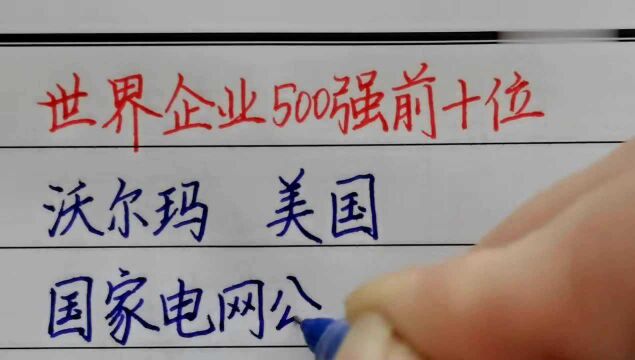 世界企业500强前十位
沃尔玛 美国
国家电网公